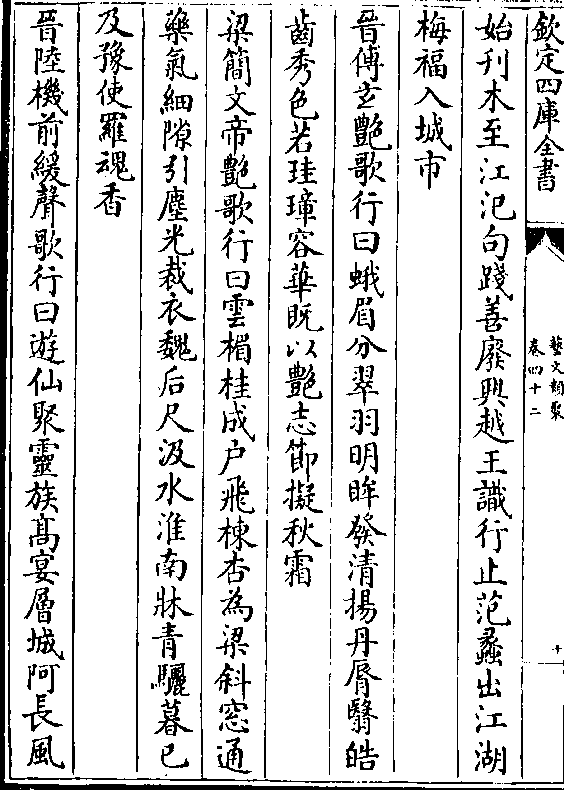 欽定四庫全書
藝文類聚
卷四十二
十
始刋木至江汜句踐善廢興越王識行止范蠡出江湖
梅福入城市
晉傅𤣥艷歌行曰蛾眉分翠羽明眸發清揚丹脣翳皓
齒秀色若珪璋容華既以艷志節擬秋霜
梁簡文帝艷歌行曰雲楣桂成户飛棟杏為梁斜窓通
藥氣細隙引塵光裁衣魏后尺汲水淮南牀青驪暮已
及豫使羅魂香
晉陸機前緩聲歌行曰遊仙聚靈族髙宴層城阿長風